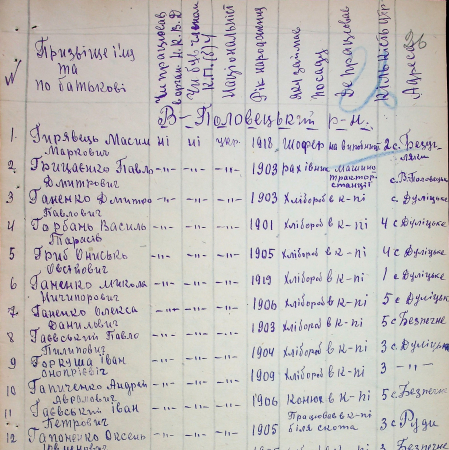 N Призвіще ім'я та по батькові Чи працював в орган. Н.К.В.Д Чи був членом К.П.(б)У Національність Рік народження Яку займав посаду Де працював Кількість Адреса
В-Половецький р-н.
1. Гирявець Масим Маркович ні ні укр. 1918 Шофер 2 с.
2. Гриценко Павло Дмитрович -„- -„- -„- 1903 рахівник машино тракторстанції с. В. Половецьк
3 Ганенко Дмитро Павлович -„- -„- -„- 1903 Хлібороб в к-пі с. Дуліцьке
4 Горбань Василь Тарасів -„- -„- -„- 1901 Хлібороб в к-пі 4 с Дуліцьке
5 Гриб Онисько Овсійович -„- -„- -„- 1905 Хлібороб в к-пі 4 с Дуліцьке
6 Ганенко Микола Ничипорович -„- -„- -„- 1919 Хлібороб в к-пі 1 с Дуліцьке
7 Ганенко Олекса Данилович -„- -„- -„- 1906 Хлібороб в к-пі 5 с Дуліцьк
8 Гаєвський Павло Пилипович -„- -„- -„- 1903 Хлібороб в к-пі 5 с Безпечне
9 Горкуша Іван Анопрієвіч -„- -„- -„- 1904 Хлібороб в к-пі 3 с. Дуліцьк
10 Гапіченко Андрій -„- -„- -„- 1909 Хлібороб в к-пі 3 -„-
11 Гаєвський Іван Петрович -„- -„- -„- 1906 Конюх в к-пі 5 с. Безпечне
12 Гапоненко Оксень -„- -„- -„- 1905 Працював в к-пі біля скота 3 с Руди
3 Безпечне